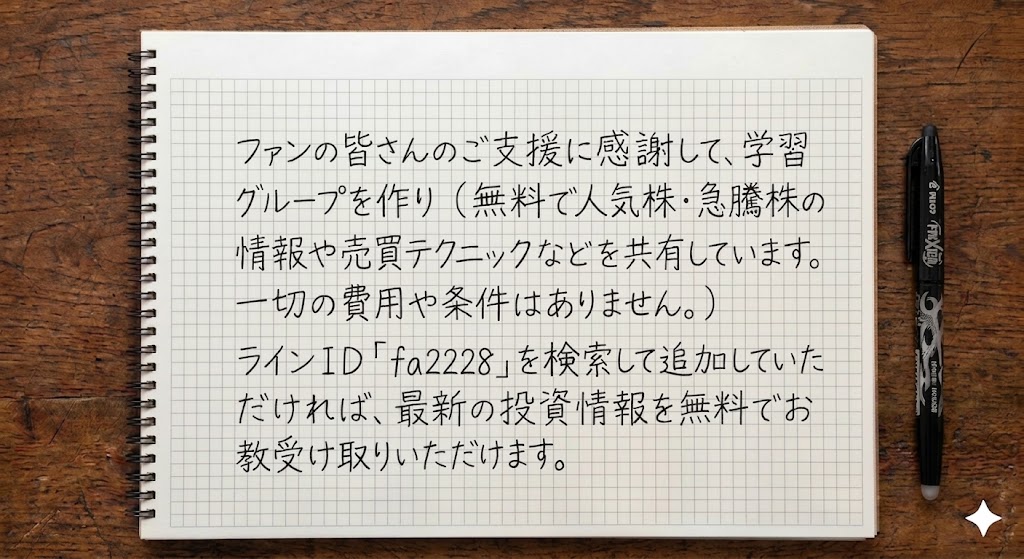 ファンの皆さんのご支援に感謝して、学習
グループを作り（無料で人気株・急騰株の
情報や売買テクニックなどを共有しています。
一切の費用や条件はありません。）
ラインID「fa2228」を検索して追加していた
だければ、最新の投資情報を無料でお
教受け取りいただけます。
PILOT